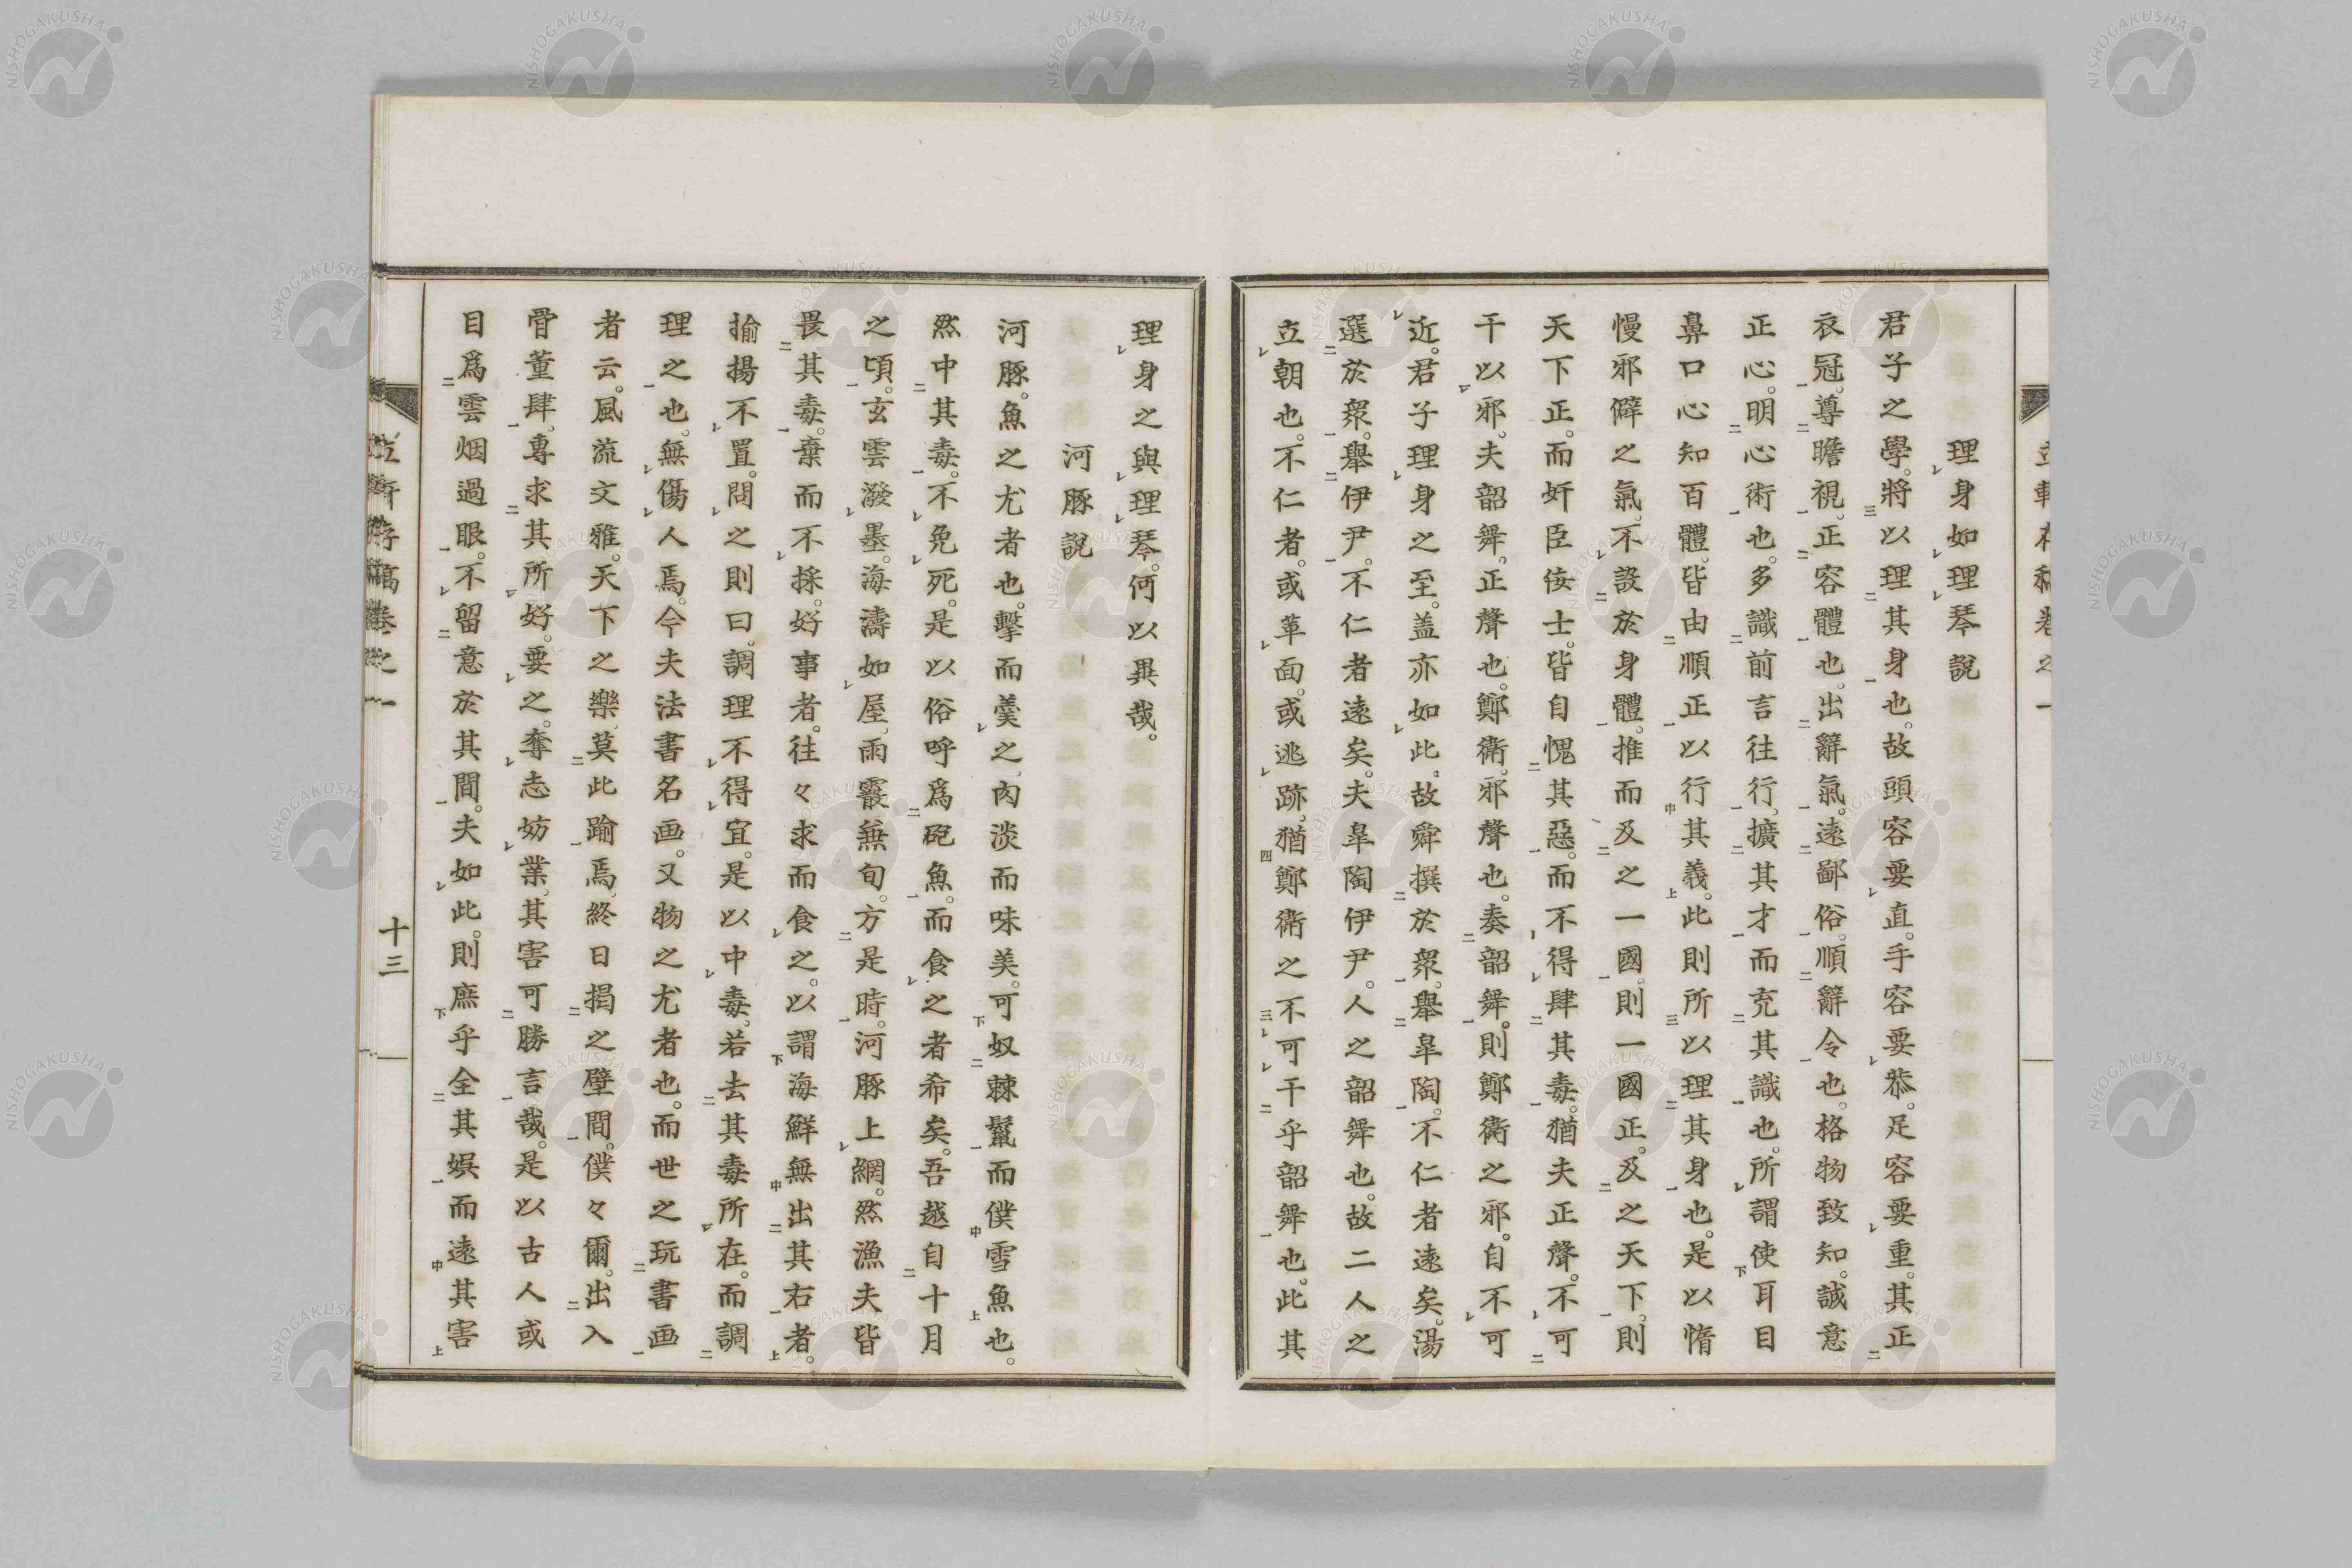 理身如理琴說
君子之學。將以理其身也。故頭容要直。手容要恭。足容要重。其正
衣冠。尊瞻視。正容體也。出辭氣。遠鄙俗。順辭令也。格物致知。誠意
正心。明心術也。多識前言往行。擴其才而充其識也。所謂使耳目
鼻口心知百體。皆由順正以行其義。此則所以理其身也。是以惰
慢邪僻之氣。不設於身體。推而及之一國。則一國正。及之天下。則
天下正。而奸臣佞士。皆自愧其惡。而不得肆其毒。猶夫正聲。不可
干以邪。夫韶舞。正聲也。鄭衛。邪聲也。奏韶舞。則鄭衛之邪。自不可
近。君子理身之至。盖亦如此。故舜撰於衆。舉皐陶。不仁者遠矣。湯
選於衆。舉伊尹。不仁者遠矣。夫皐陶伊尹。人之韶舞也。故二人之
立朝也。不仁者。或革面。或逃跡。猶鄭衛之不可干乎韶舞也。此其
理身之與理琴。何以異哉。
河豚說
河豚。魚之尤者也。擊而羹之、肉淡而味美。可奴棘鬣而僕雪魚也。
然中其毒。不免死。是以俗呼爲砲魚。而食之者希矣。吾越自十月
之頃。玄雲潑墨。海濤如屋、雨霰無旬。方是時。河豚上網。然漁夫皆
畏其毒。棄而不採。好事者。往々求而食之。以謂海鮮無出其右者。
揄揚不置。問之則曰。調理不得宜。是以中毒。若去其毒所在。而調
理之也。無傷人焉。今夫法書名画。又物之尤者也。而世之玩書画
者云。風流文雅。天下之樂、莫此踰焉、終日揭之壁間。僕々爾。出入
骨董肆。專求其所好。要之。奪志妨業。其害可勝言哉。是以古人或
目爲雲烟過眼。不留意於其間。夫如此。則庶乎全其娯而遠其害
立軒存稿卷之一
十三
NISHOGAKUSHA